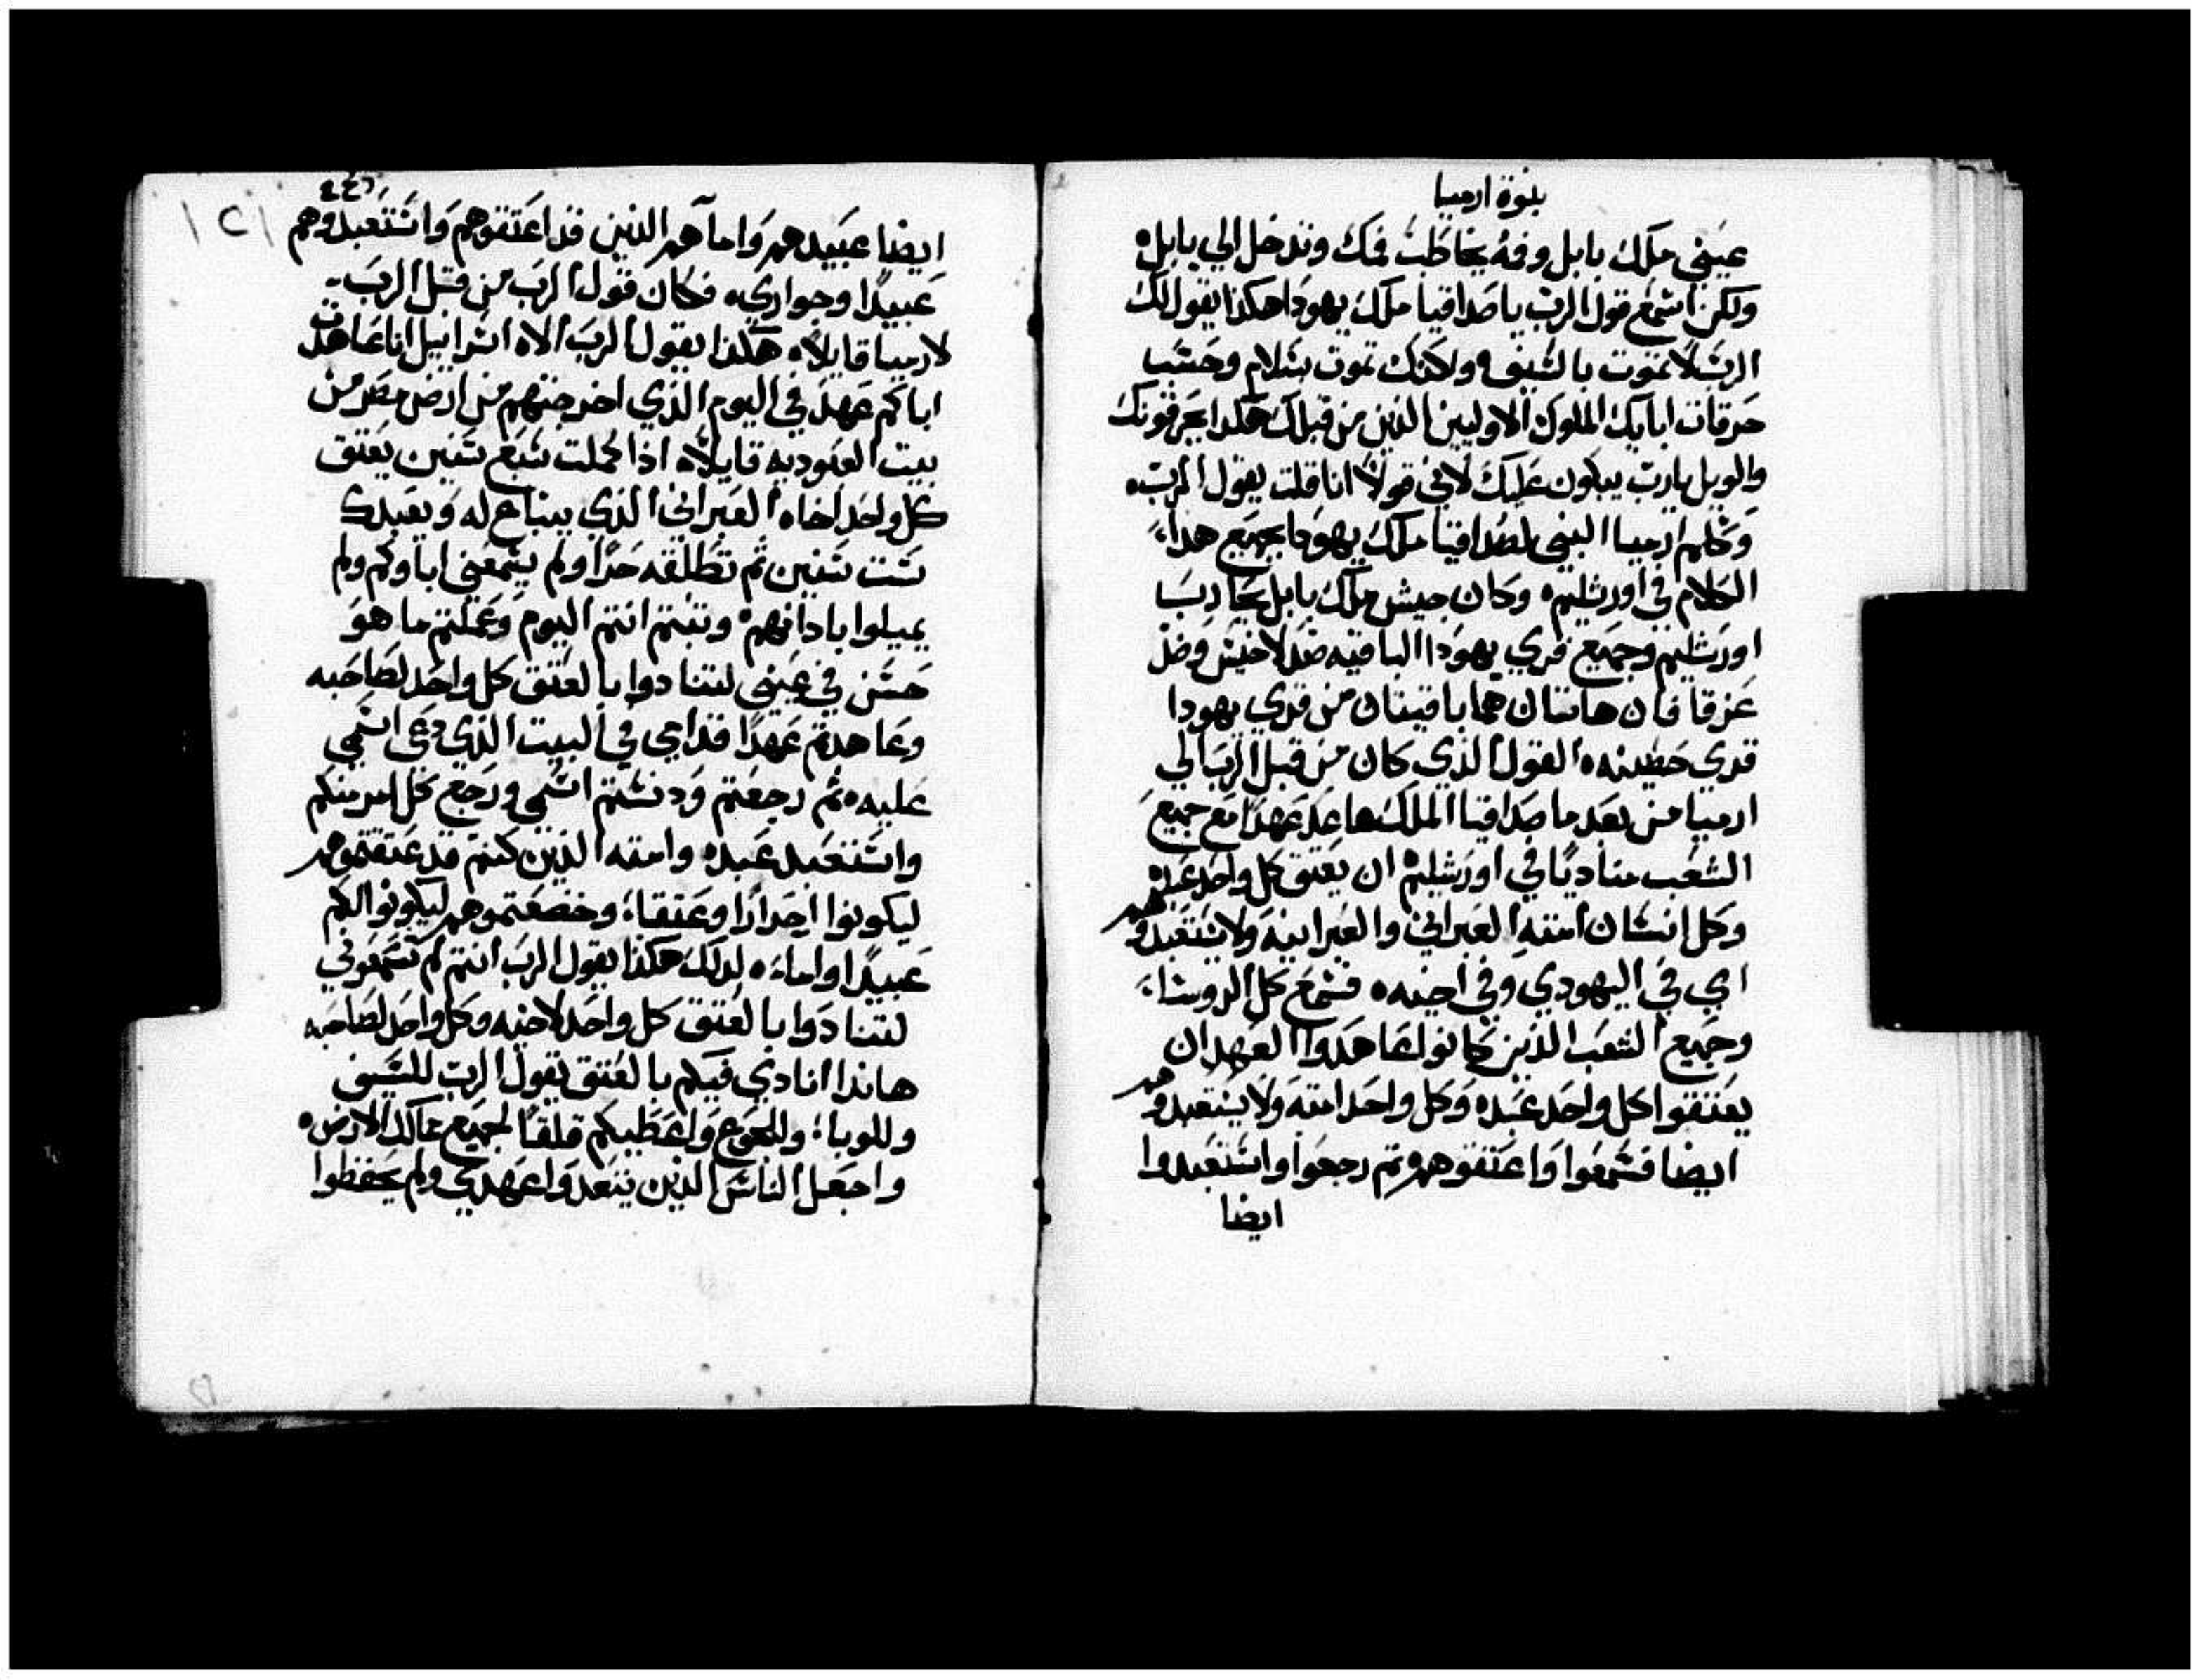 بنوة ارميا
عيني ملك بابل وفه يخاطب فمك وتدخل الي بابل
ولكن اسمع قول الرب يا صداقيا ملك يهودا هكذا يقول لك
الرب لا تموت بالسيف ولكنك تموت بسلام وحسب
حرقات ابايك الملوك الاوليين الذين من قبلك هكدا يحرقونك
والويل يارب يبكون عليك لاني قولا انا قلت يقول الرب
وكلم ارميا النبي لصداقيا ملك يهودا بجميع هدا
الكلام في اورشليم وكان جيش ملك بابل يحارب
اورشليم وجميع قري يهودا الباقيه ضد لاخيش وضد
عزقا فان هاتان هما باقيتان من قري يهودا
قري حصينه القول الذي كان من قبل الرب الي
ارميا من بعد ما صداقيا الملك عاهد عهدا مع جميع
الشعب مناديا في اورشليم ان يعتق كل واحد عبده
وكل انسان امته العبراني والعبرانيه ولا يستعبدوهم
اي في اليهودي وفي اخيه فسمع كل الروسا
وجميع الشعب الذين كانوا عاهدوا العهد ان
يعتقوا كل واحد عبده وكل واحد امته ولا يستعبدوهم
ايضا فسمعوا واعتقوهم وتم رجعوا واستعبدوا
ايضا
ايضا عبيدهم واماهم الذين قد اعتقوهم واستعبدوهم
عبيدا وجواري فكان قول الرب من قبل الرب
لارميا قايلا هكذا يقول الرب الاه اسراييل انا عاهدت
اباكم عهد في اليوم الذي اخرجتهم من ارض مصر من
بيت العبوديه قايلا اذا كملت سبع سنين يعتق
كل واحد اخاه العبراني الذي يبتاع له ويعبدك
ست سنين ثم تطلقه حرا ولم يسمعني اباوكم ولم
يميلوا باداتهم وتبتم انتم اليوم وعملتم ما هو
حسن في عيني لتنادوا بالعتق كل واحد لصاحبه
وعاهدتم عهدا قدامي في البيت الذي دعي اسمي
عليه ثم رجعتم ودنستم اسمي ورجع كل امر منكم
واستعبد عبده وامته الذين كنتم قد عتقتموهم
ليكونوا احرارا وعتقا وخضعتموهم ليكونوا لكم
عبيدا واماء لدلك هكذا يقول الرب انتم لم تسمعوني
لتنادوا بالعتق كل واحد لاخيه وكل واحد لصاحبه
هاندا انادي فيكم بالعتق يقول الرب للسيف
وللوبا وللجوع واعطيكم قلقا لجميع ممالك الارض
واجعل الناس الذين يتعدوا عهدي ولم يحفظوا